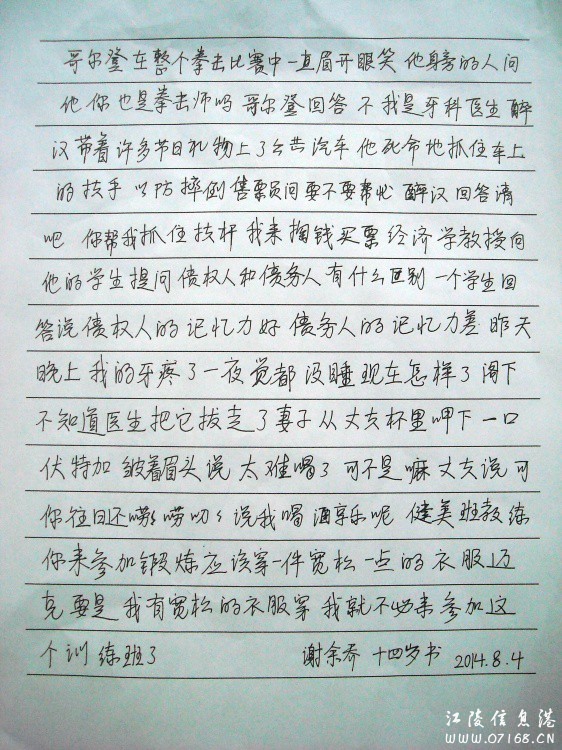 哥尔登在整个拳击比赛中一直眉开眼笑 他身旁的人问
他你也是拳击师吗 哥尔登回答 不我是牙科医生 醉
汉带着许多节日礼物上了公共汽车 他死命地抓住车上
的扶手 以防摔倒 售票员问要不要帮忙 醉汉回答请
吧 你帮我抓住扶杆 我来掏钱买票 经济学教授向
他的学生提问债权人和债务人有什么区别 一个学生回
答说债权人的记忆力好 债务人的记忆力差 昨天
晚上我的牙疼了一夜觉都没睡 现在怎样了阁下
不知道医生把它拔走了 妻子从丈夫杯里呷下一口
伏特加 皱着眉头说 太难喝了 可不是嘛 丈夫说可
你往日还唠唠叨叨说我喝酒享乐呢 健美班教练
你来参加锻炼应该穿一件宽松一点的衣服 迈
克 要是我有宽松的衣服穿 我就不必来参加这
个训练班了
谢余乔 十四岁书 2014.8.4
江陵信息港
WWW.07168.CN